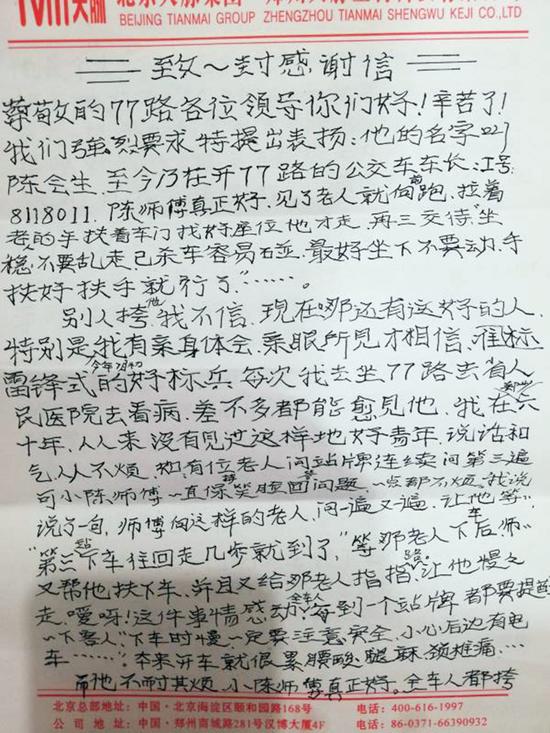 BEIJING TIANMAI GROUP ZHENGZHOU TIANMAI SHENGWU KEJI CO.,LTD
致一封感谢信
尊敬的77路各位领导你们好!辛苦了!
我们强烈要求特提出表扬:他的名字叫
陈会生.至今仍在开77路的公交车车长:工号:
8118011.陈师傅真正好.见了老人就向前跑.拉着
老的手扶着车门找好座位他才走.再三交待"坐
稳.不要乱走.已杀车容易碰.最好坐下不要动.手
扶好扶手就行了"……。
别人挎他我不信.现在哪还有这好的人.
特别是我有亲身体会.亲眼所见才相信.准标
雷锋式的好标兵.今年7月初每次我去坐77路去省人
民医院去看病.差不多都能愈见他.我在六
十年.从从来没有见过这样地好青年.说话和
气.从从不烦.如有位老人问站牌连续问第三遍
可小陈师傅一直保持笑脸回答问题.一点都不烦.我说
说了一句.师傅向这样的老人.问一遍又一遍.让他等车"
"第三站下车住回走几步就到了"等那老人下后.师
又帮他扶下车.并且又给那老人指指路.让他慢慢
走.嗳呀!这件事情感动全车人.每到一个站牌都要提醒
"下客人"下车时慢一定要注意安全.小心后边有电
车……。本来开车就很累腰酸.腿麻.颈椎痛…
而他不耐其烦.小陈师傅真正好.全车人都挎
北京总部地址:中国·北京海淀区颐和园路168号 电话:400-616-1997
公司地址:中国·郑州商城路281号汉博大厦4F 电话:86-0371-66390932